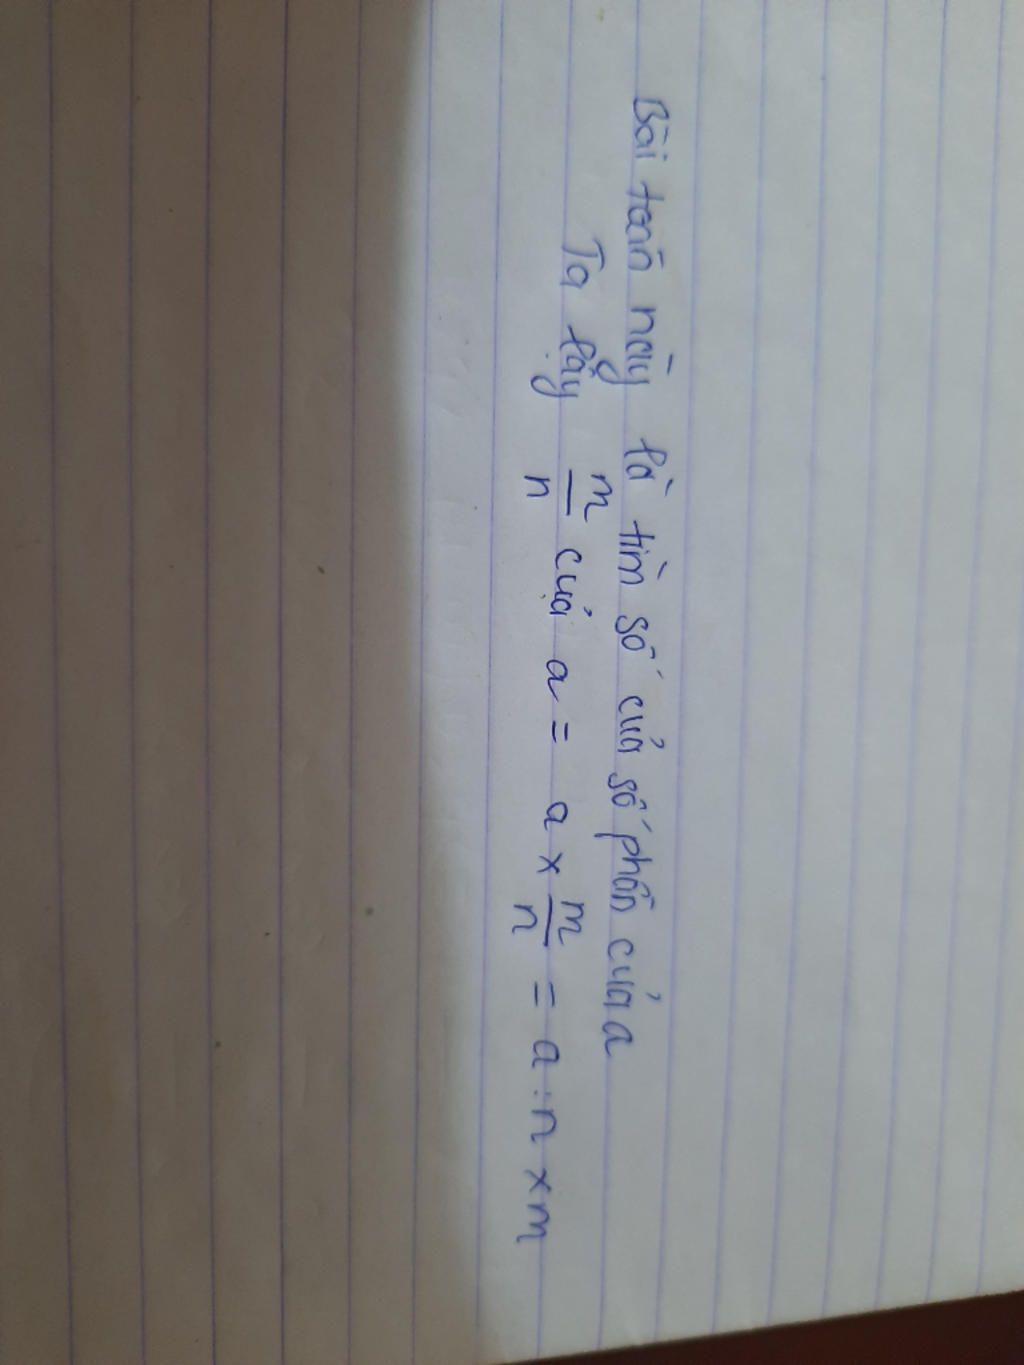 Bài toán này là tìm số của số phần của a
Ta lấy m/n của a = a x m/n = a : n x m